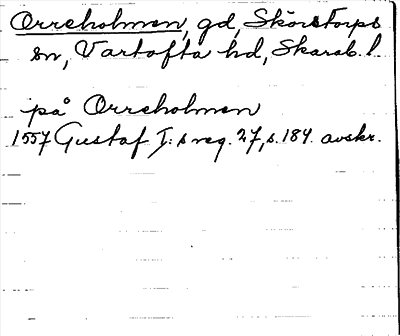 Orreholmen, gd, Skörstorps
sn, Vartofta hd, Skarab. l.
på Orreholmen
1557 Gustaf I:s reg. 27, s. 184. avskr.